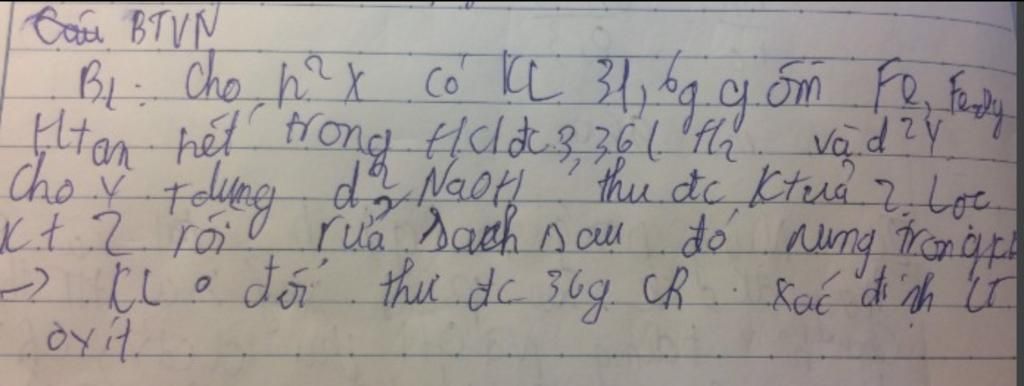 Câu BTVN
B1: Cho h² X có KL 31,6g gồm Fe, FexOy
H tan hết trong HCl đc 3,36 l H2 và d² Y
Cho Y + dụng d² NaOH thu đc Ktuả Z. Lọc
Kt Z rồi rửa sạch sau đó nung trong kk
-> KL o đổi thu đc 36g CR. Xác định CT
oxit